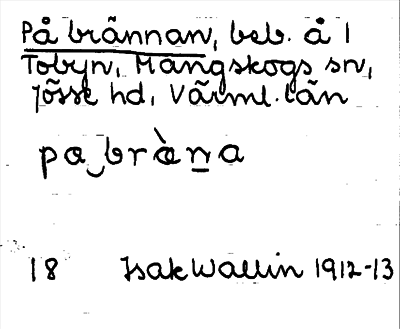 På brännan, beb. å 1
Tobyn, Mangskogs sn,
Jösse hd, Värml. län
pa‿bràna
18 Isak Wallin 1912-13